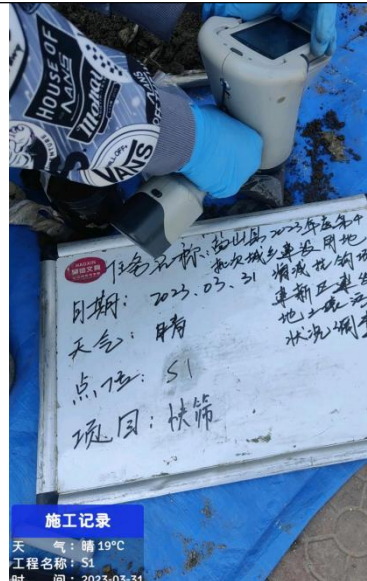 HOUSE OF
VANS
VANS
任务名称:盐山县2023年度第4
批次城乡建设用地
增减挂钩项
建新区建设
地土壤污
状况调查
日期: 2023.03.31
天气: 晴
点位: S1
项目: 快筛
施工记录
天 气:晴 19°C
工程名称:S1
时 间:2023-03-31